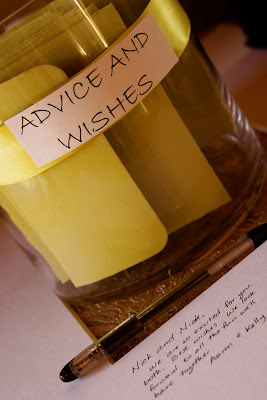 ADVICE AND
WISHES
Nick and Nick,
We are so excited for you
both. Best wishes we look
forward to all the fun we'll
have together Aaron & Kelly